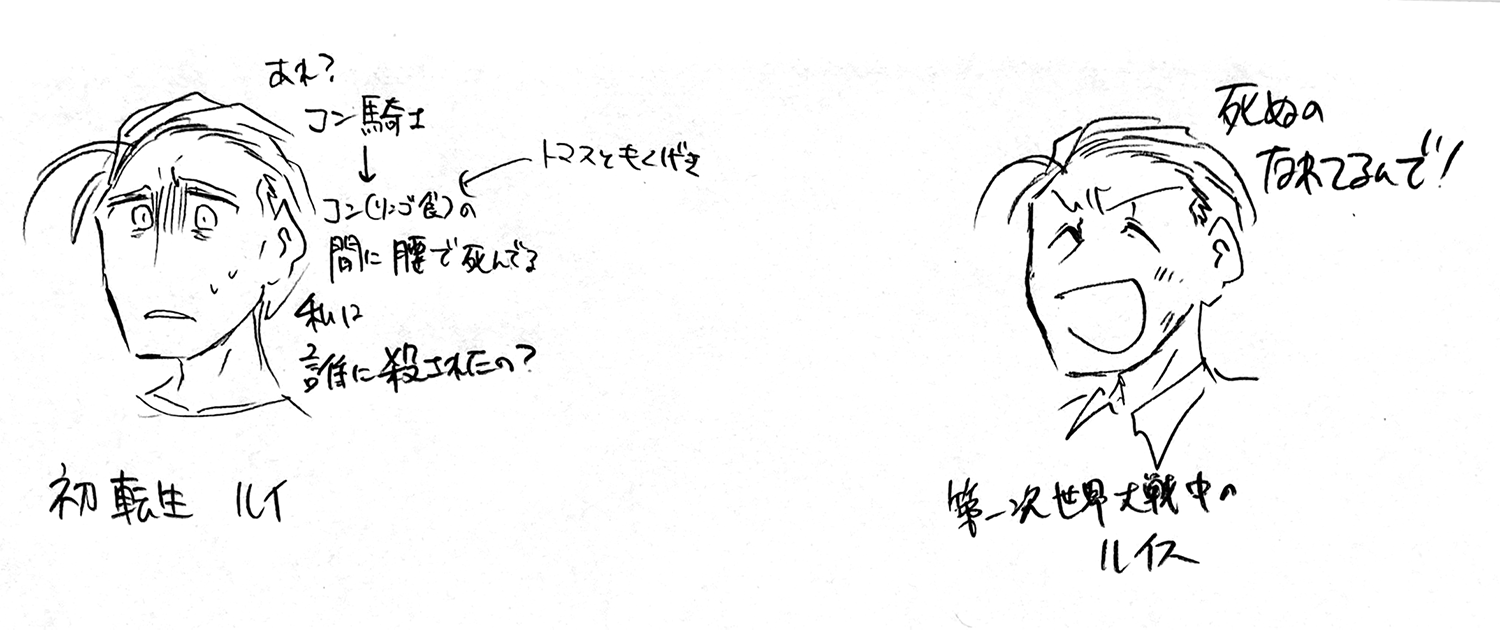 あれ?
コン騎士
↓
コン(リンゴ食)の
← トマスともくげき
間に腰で死んでる
私は
誰に殺されたの?
初転生 ルイ
死ぬの
なれてるんで!
第一次世界大戦中の
ルイス